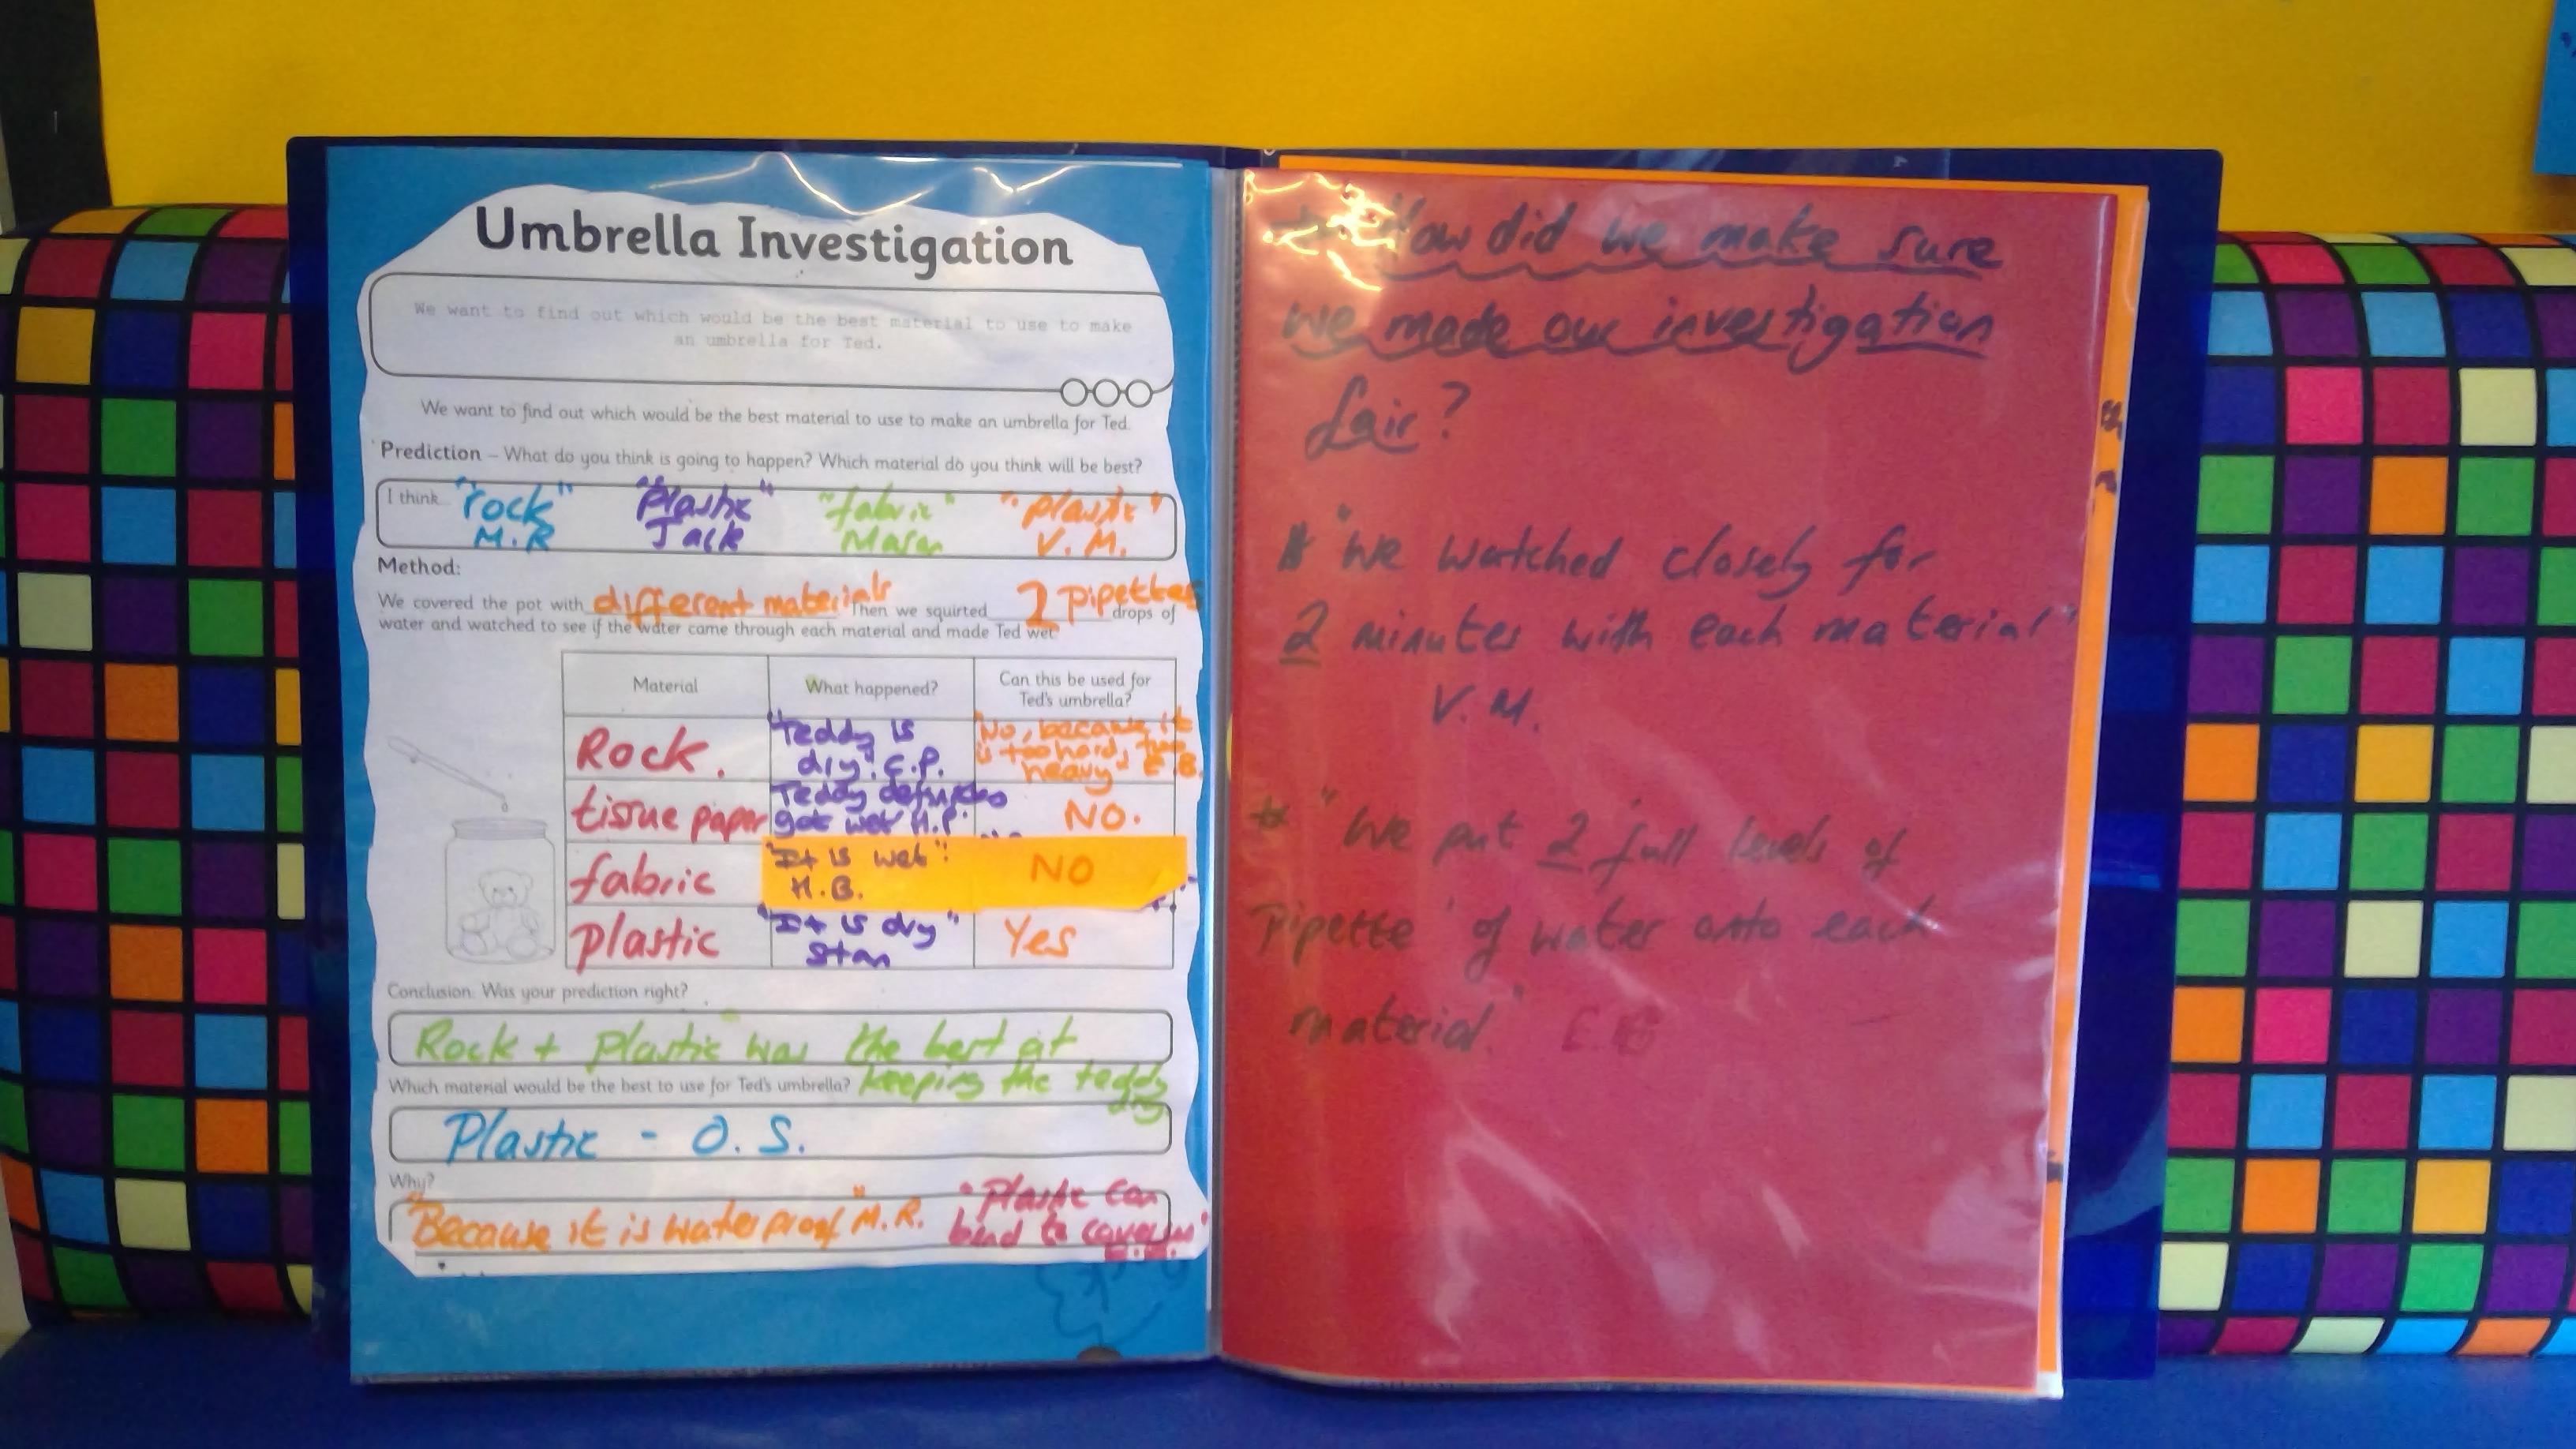 Umbrella Investigation
We want to find out which would be the best material to use to make
an umbrella for Ted.
We want to find out which would be the best material to use to make an umbrella for Ted.
Prediction – What do you think is going to happen? Which material do you think will be best?
I think "rock" "Plastic" "fabric" "plastic"
M.R Jack Mason V.M.
Method:
We covered the pot with different materials Then we squirted 2 pipettes drops of
water and watched to see if the water came through each material and made Ted wet
Material What happened? Can this be used for Ted's umbrella?
Rock. "Teddy is dry". E.P. "No, because it is too hard, too heavy" E B.
tissue paper Teddy got wet H.P. NO.
fabric "It is wet". H.B. NO
plastic "It is dry" Stan Yes
Conclusion: Was your prediction right?
Rock + Plastic was the best at
keeping the teddy
dry
Which material would be the best to use for Ted's umbrella?
Plastic - O.S.
Why?
"Because it is waterproof" M.R. "Plastic can
bend to
How did we make sure
we made our investigation
fair?
"We watched closely for
2 minutes with each material"
V.M.
"We put 2 full levels of
pipette of water onto each
material." E.B